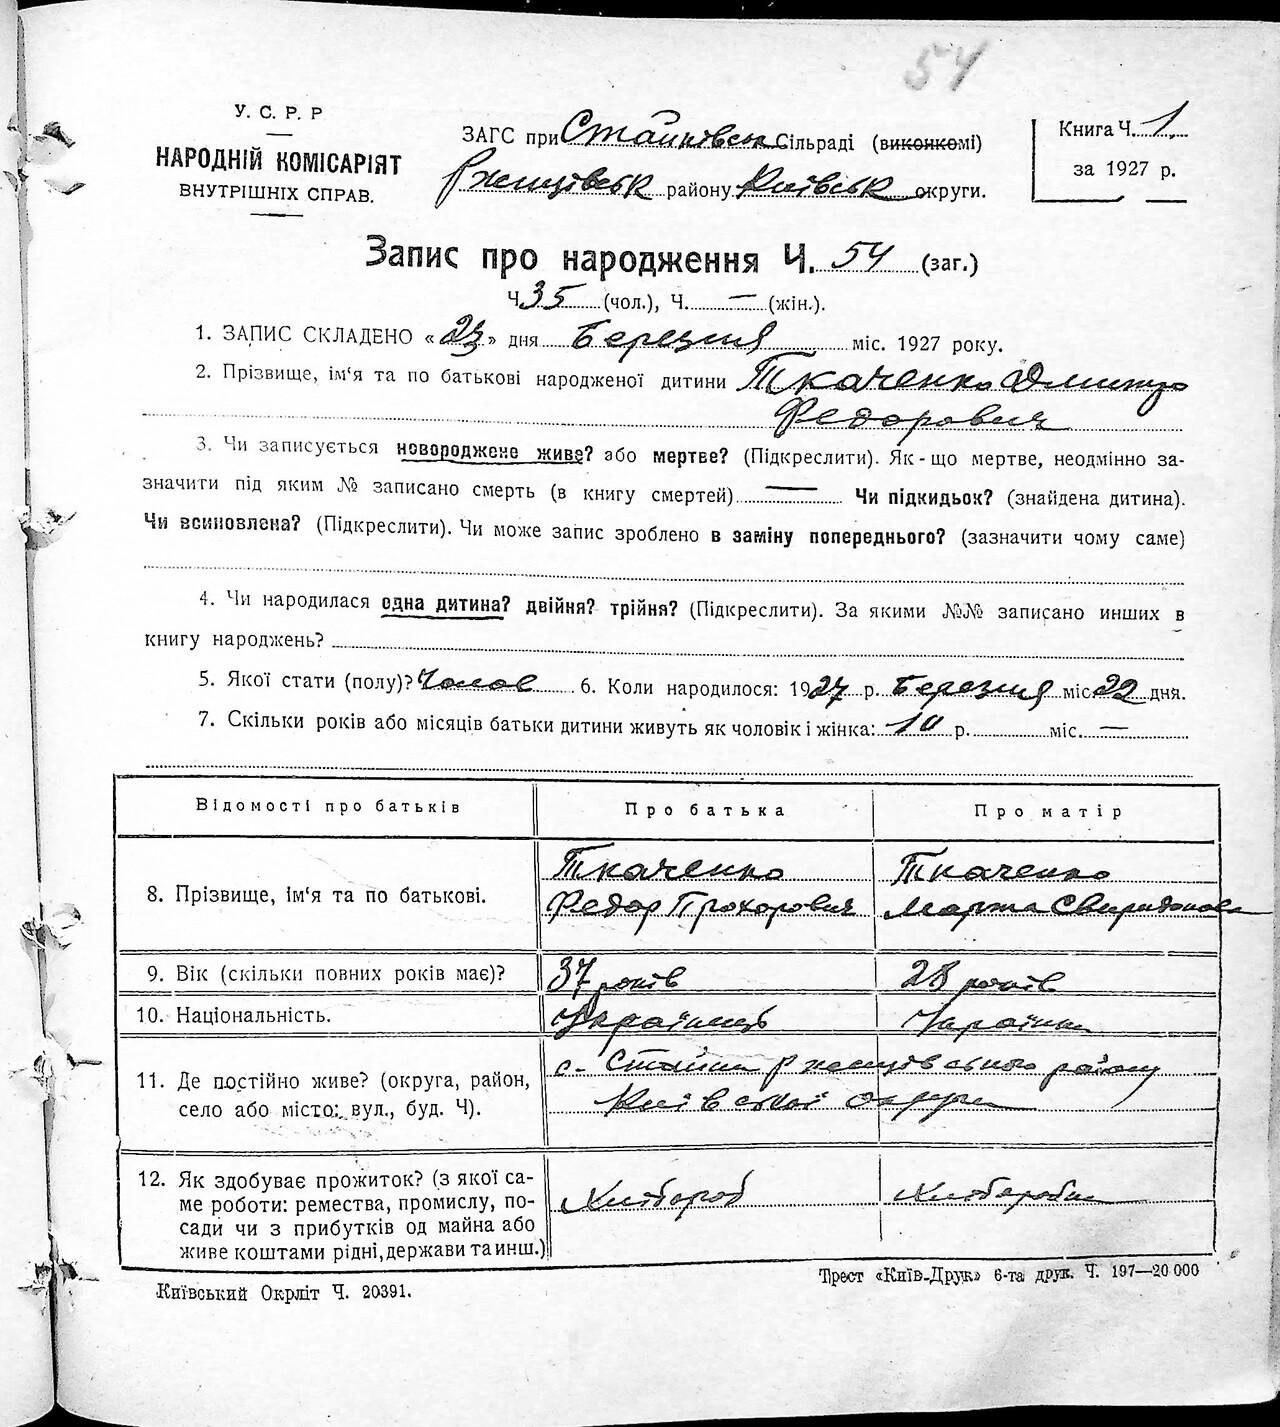 54
У. С. Р. Р
НАРОДНІЙ КОМІСАРІЯТ
ВНУТРІШНІХ СПРАВ.
ЗАГС при Стайківськ Сільраді (виконкомі)
Ржищівськ району Київськ округи.
Книга Ч. 1.
за 1927 р.
Запис про народження Ч. 54 (заг.)
Ч 35 (чол.), Ч. — (жін.).
1. ЗАПИС СКЛАДЕНО «23» дня Березня міс. 1927 року.
2. Прізвище, ім'я та по батькові народженої дитини Ткаченко Дмитро
Федорович
3. Чи записується новороджене живе? або мертве? (Підкреслити). Як-що мертве, неодмінно за-
значити під яким № записано смерть (в книгу смертей) — Чи підкидьок? (знайдена дитина).
Чи всиновлена? (Підкреслити). Чи може запис зроблено в заміну попереднього? (зазначити чому саме)
4. Чи народилася одна дитина? двійня? трійня? (Підкреслити). За якими №№ записано инших в
книгу народжень?
5. Якої стати (полу)? Чолов 6. Коли народилося: 1927 р. Березня міс 22 дня.
7. Скільки років або місяців батьки дитини живуть як чоловік і жінка: 10 р. міс. —
Відомості про батьків Про батька Про матір
8. Прізвище, ім'я та по батькові.
Ткаченко Ткаченко
Федор Прохорович Марта Свиридонова
9. Вік (скільки повних років має)? 37 років 28 років
10. Національність. Українець Українка
11. Де постійно живе? (округа, район,
село або місто: вул., буд. Ч).
с. Стайки Ржищівського району
Київської округи
12. Як здобуває прожиток? (з якої са-
ме роботи: ремества, промислу, по-
сади чи з прибутків од майна або
живе коштами рідні, держави та инш.)
Хлібороб Хлібороби
Київський Окрліт Ч. 20391.
Трест «Київ-Друк» 6-та друк. Ч. 197—20 000